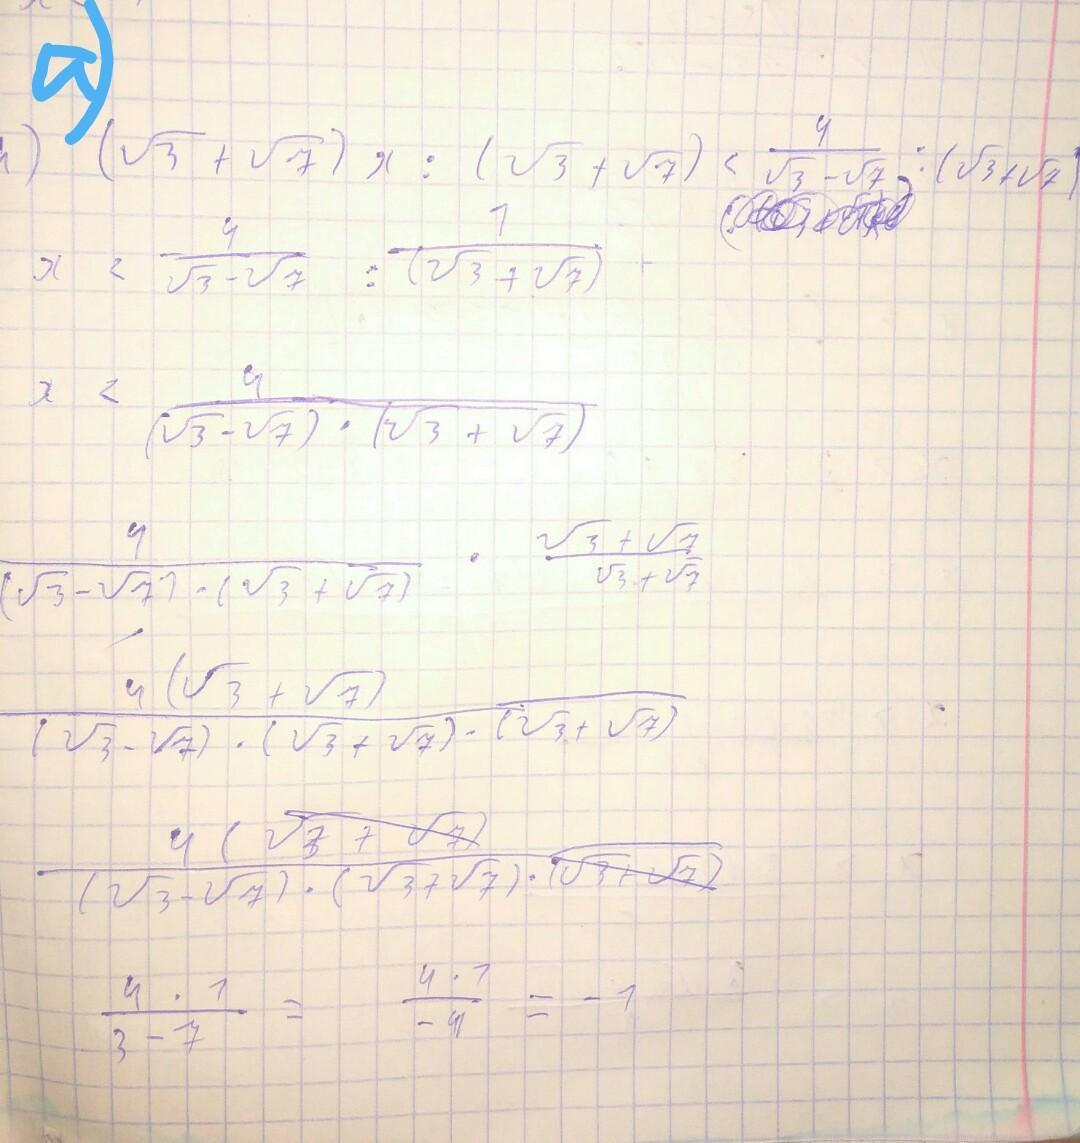 а)
(√3 + √7) x : (√3 + √7) < 4/(√3 - √7) : (√3 + √7)
x < 4/(√3 - √7) : 1/(√3 + √7)
x < 4/((√3 - √7) · (√3 + √7))
4/((√3 - √7) · (√3 + √7)) · (√3 + √7)/(√3 + √7)
4(√3 + √7)/((√3 - √7) · (√3 + √7) · (√3 + √7))
4(√3 + √7)/((√3 - √7) · (√3 + √7) · (√3 + √7))
4 · 1/(3 - 7) = 4 · 1/(-4) = -1